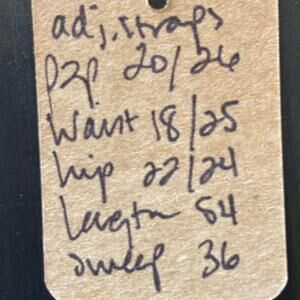 adj. straps
p2p 20/26
Waist 18/25
hip 22/24
length 54
sweep 36